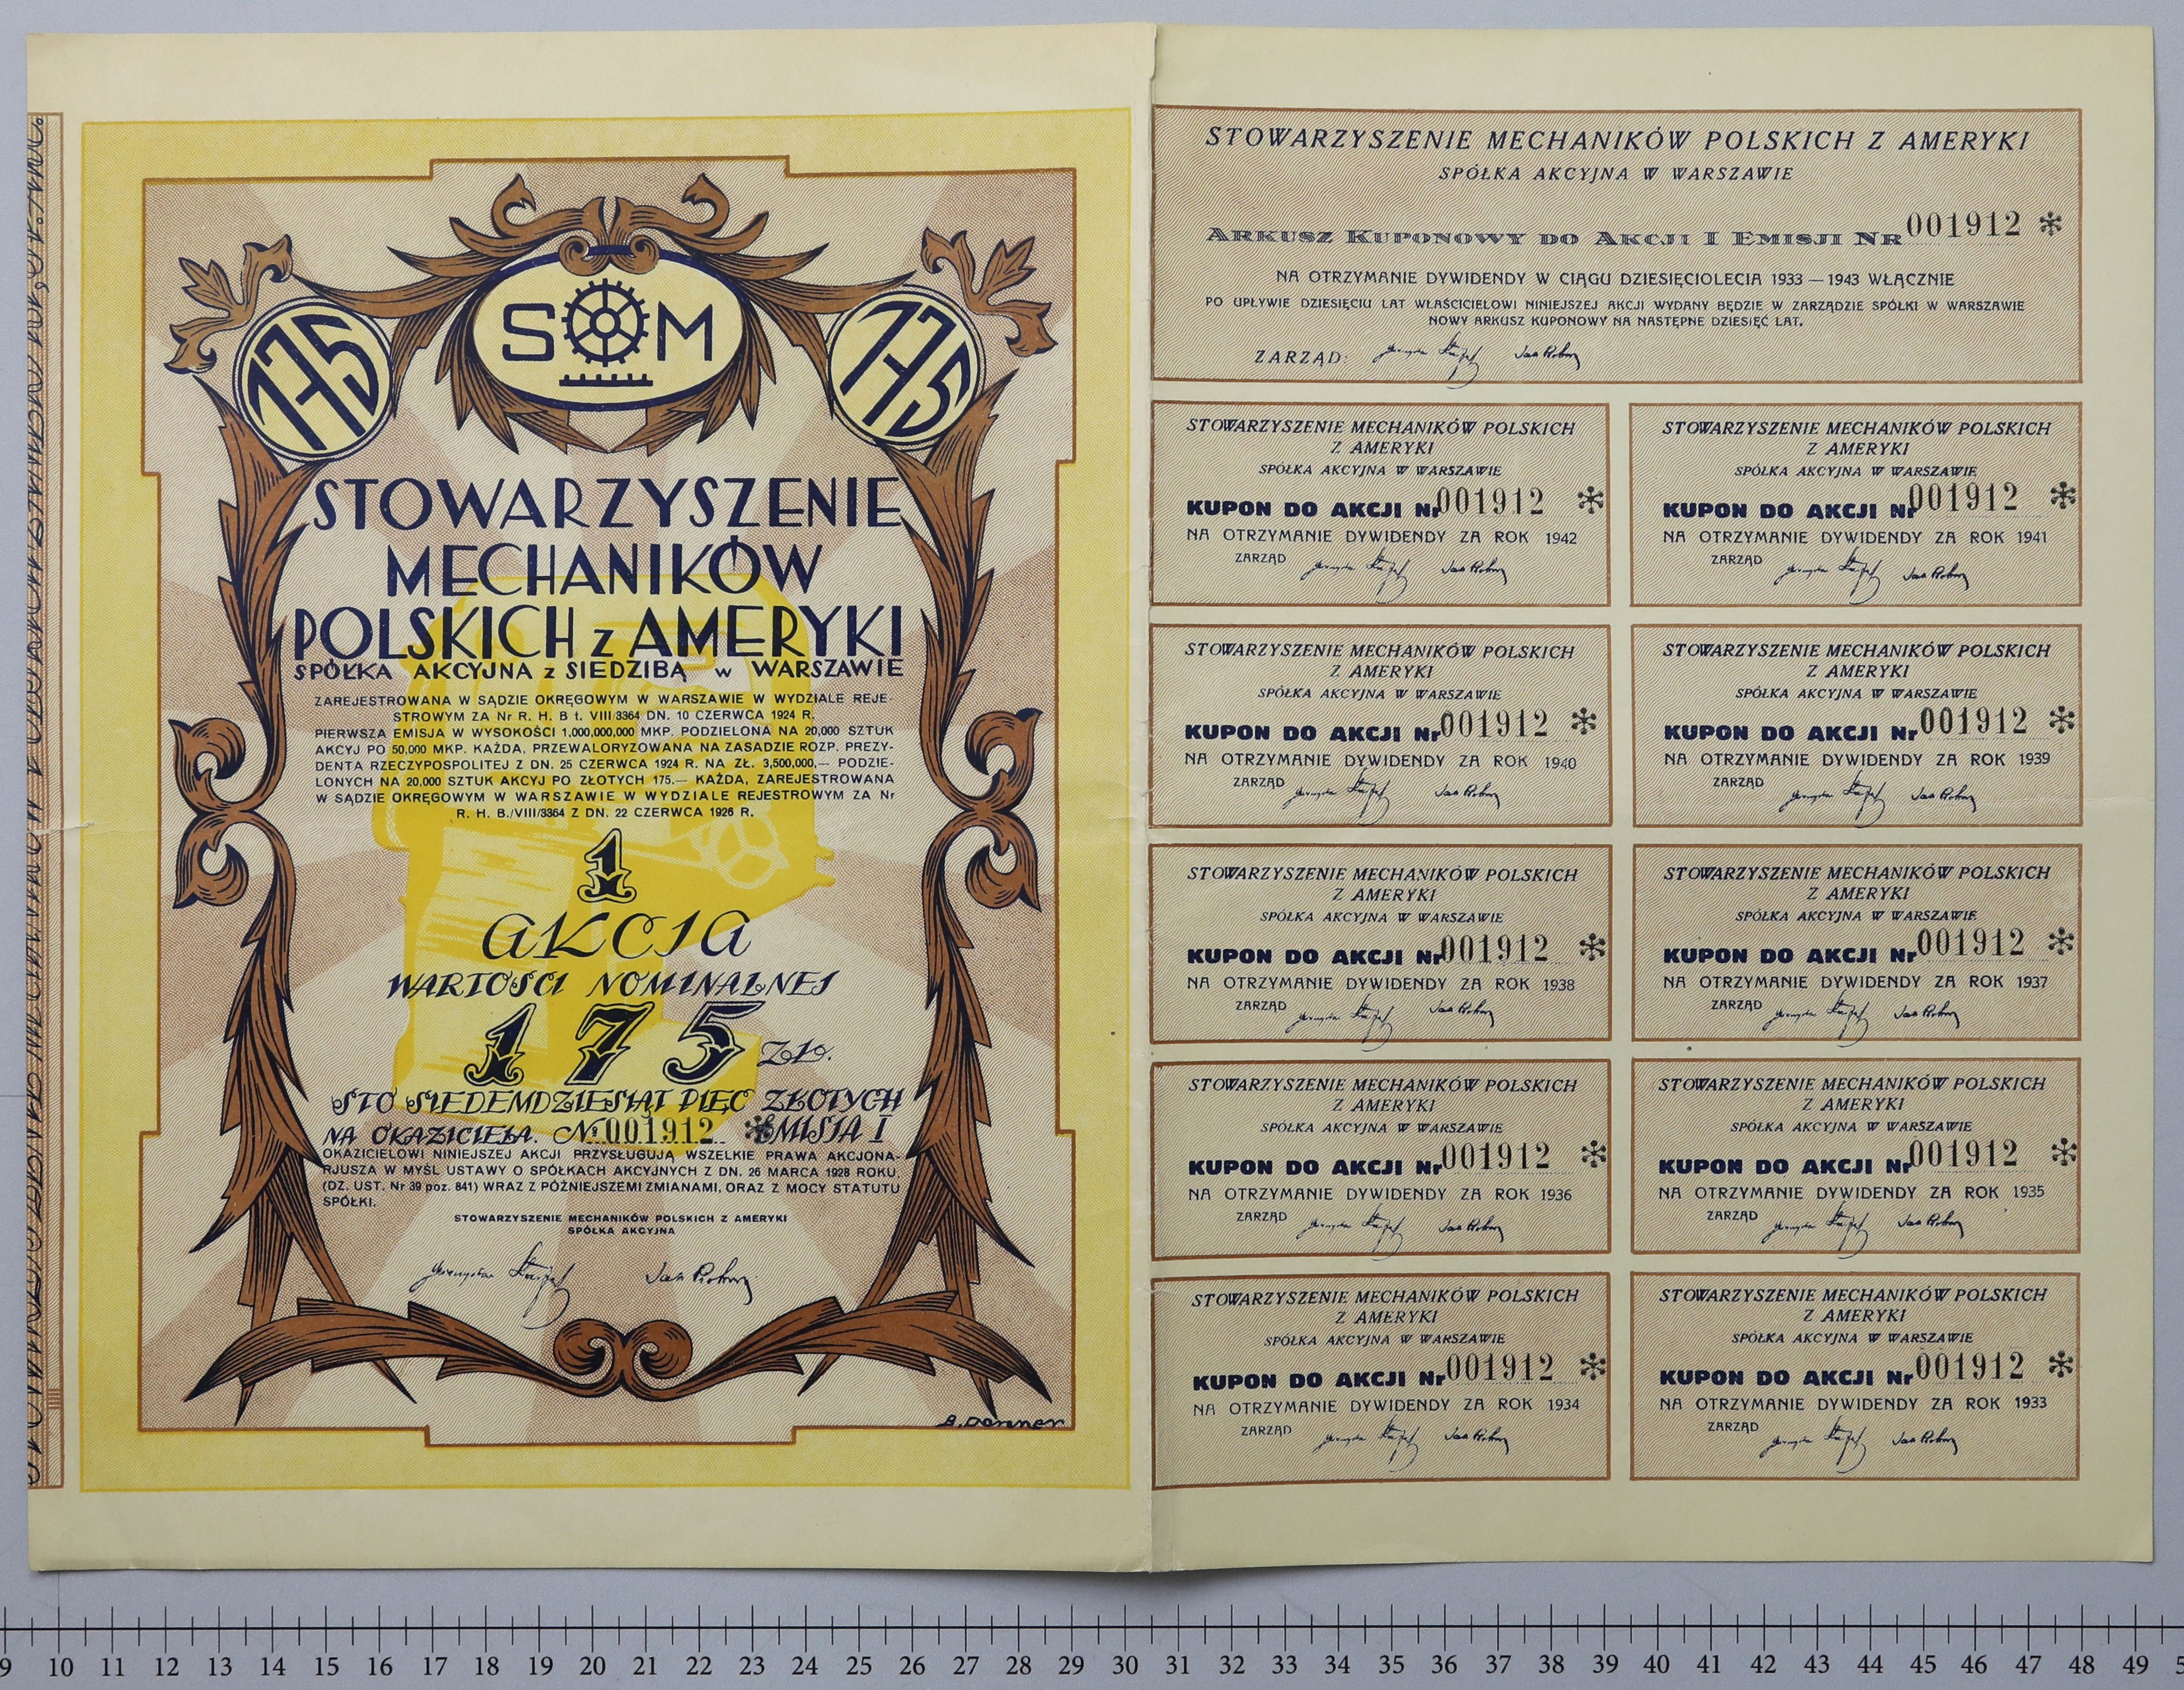 175
S M
175
STOWARZYSZENIE
MECHANIKÓW
POLSKICH z AMERYKI
SPÓŁKA AKCYJNA z SIEDZIBĄ w WARSZAWIE
ZAREJESTROWANA W SĄDZIE OKRĘGOWYM W WARSZAWIE W WYDZIALE REJE-
STROWYM ZA Nr R. H. B t. VIII/3364 DN. 10 CZERWCA 1924 R.
PIERWSZA EMISJA W WYSOKOŚCI 1,000,000,000 MKP. PODZIELONA NA 20,000 SZTUK
AKCYJ PO 50,000 MKP. KAŻDA, PRZEWALORYZOWANA NA ZASADZIE ROZP. PREZY-
DENTA RZECZYPOSPOLITEJ Z DN. 25 CZERWCA 1924 R. NA ZŁ. 3,500,000,— PODZIE-
LONYCH NA 20,000 SZTUK AKCYJ PO ZŁOTYCH 175.— KAŻDA, ZAREJESTROWANA
W SĄDZIE OKRĘGOWYM W WARSZAWIE W WYDZIALE REJESTROWYM ZA Nr
R. H. B./VIII/3364 Z DN. 22 CZERWCA 1926 R.
1
AKCIA
WARTOŚCI NOMINALNEJ
175 ZŁO.
STO SIEDEMDZIESIĄT PIĘC ZŁOTYCH
NA OKAZICIELA. № 001912 * EMISJA I
OKAZICIELOWI NINIEJSZEJ AKCJI PRZYSŁUGUJĄ WSZELKIE PRAWA AKCJONA-
RJUSZA W MYŚL USTAWY O SPÓŁKACH AKCYJNYCH Z DN. 26 MARCA 1928 ROKU,
(DZ. UST. Nr 39 poz. 841) WRAZ Z PÓŹNIEJSZEMI ZMIANAMI, ORAZ Z MOCY STATUTU
SPÓŁKI.
STOWARZYSZENIE MECHANIKÓW POLSKICH Z AMERYKI
SPÓŁKA AKCYJNA
STOWARZYSZENIE MECHANIKÓW POLSKICH Z AMERYKI
SPÓŁKA AKCYJNA W WARSZAWIE
ARKUSZ KUPONOWY DO AKCJI I EMISJI NR 001912 *
NA OTRZYMANIE DYWIDENDY W CIĄGU DZIESIĘCIOLECIA 1933 — 1943 WŁĄCZNIE
PO UPŁYWIE DZIESIĘCIU LAT WŁAŚCICIELOWI NINIEJSZEJ AKCJI WYDANY BĘDZIE W ZARZĄDZIE SPÓŁKI W WARSZAWIE
NOWY ARKUSZ KUPONOWY NA NASTĘPNE DZIESIĘĆ LAT.
ZARZĄD:
STOWARZYSZENIE MECHANIKÓW POLSKICH
Z AMERYKI
SPÓŁKA AKCYJNA W WARSZAWIE
KUPON DO AKCJI Nr 001912 *
NA OTRZYMANIE DYWIDENDY ZA ROK 1942
ZARZĄD
STOWARZYSZENIE MECHANIKÓW POLSKICH
Z AMERYKI
SPÓŁKA AKCYJNA W WARSZAWIE
KUPON DO AKCJI Nr 001912 *
NA OTRZYMANIE DYWIDENDY ZA ROK 1941
ZARZĄD
STOWARZYSZENIE MECHANIKÓW POLSKICH
Z AMERYKI
SPÓŁKA AKCYJNA W WARSZAWIE
KUPON DO AKCJI Nr 001912 *
NA OTRZYMANIE DYWIDENDY ZA ROK 1940
ZARZĄD
STOWARZYSZENIE MECHANIKÓW POLSKICH
Z AMERYKI
SPÓŁKA AKCYJNA W WARSZAWIE
KUPON DO AKCJI Nr 001912 *
NA OTRZYMANIE DYWIDENDY ZA ROK 1939
ZARZĄD
STOWARZYSZENIE MECHANIKÓW POLSKICH
Z AMERYKI
SPÓŁKA AKCYJNA W WARSZAWIE
KUPON DO AKCJI Nr 001912 *
NA OTRZYMANIE DYWIDENDY ZA ROK 1938
ZARZĄD
STOWARZYSZENIE MECHANIKÓW POLSKICH
Z AMERYKI
SPÓŁKA AKCYJNA W WARSZAWIE
KUPON DO AKCJI Nr 001912 *
NA OTRZYMANIE DYWIDENDY ZA ROK 1937
ZARZĄD
STOWARZYSZENIE MECHANIKÓW POLSKICH
Z AMERYKI
SPÓŁKA AKCYJNA W WARSZAWIE
KUPON DO AKCJI Nr 001912 *
NA OTRZYMANIE DYWIDENDY ZA ROK 1936
ZARZĄD
STOWARZYSZENIE MECHANIKÓW POLSKICH
Z AMERYKI
SPÓŁKA AKCYJNA W WARSZAWIE
KUPON DO AKCJI Nr 001912 *
NA OTRZYMANIE DYWIDENDY ZA ROK 1935
ZARZĄD
STOWARZYSZENIE MECHANIKÓW POLSKICH
Z AMERYKI
SPÓŁKA AKCYJNA W WARSZAWIE
KUPON DO AKCJI Nr 001912 *
NA OTRZYMANIE DYWIDENDY ZA ROK 1934
ZARZĄD
STOWARZYSZENIE MECHANIKÓW POLSKICH
Z AMERYKI
SPÓŁKA AKCYJNA W WARSZAWIE
KUPON DO AKCJI Nr 001912 *
NA OTRZYMANIE DYWIDENDY ZA ROK 1933
ZARZĄD
9 10 11 12 13 14 15 16 17 18 19 20 21 22 23 24 25 26 27 28 29 30 31 32 33 34 35 36 37 38 39 40 41 42 43 44 45 46 47 48 49